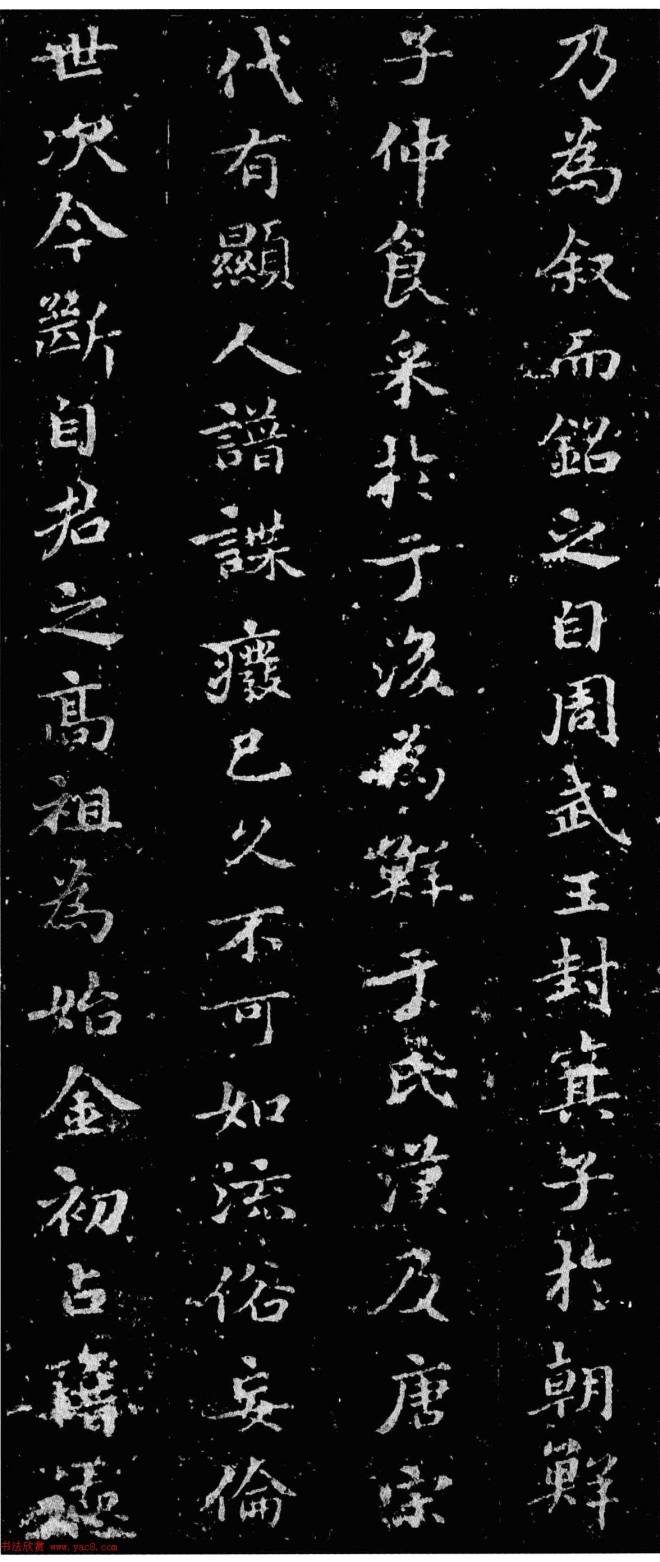 乃為叙而銘之自周武王封箕子於朝鮮
子仲食采於于後為鮮于氏漢及唐宋
代有顯人譜諜癈已久不可如流俗妄倫
世次今斷自君之高祖為始金初占籍德
书法欣赏 www.yac8.com